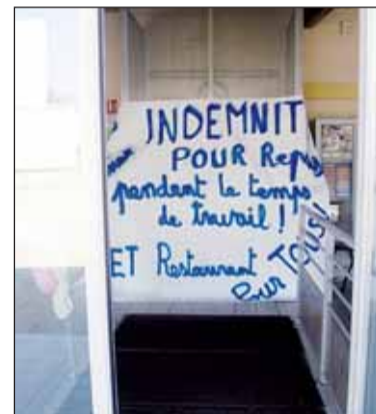 INDEMNIT
POUR Repas
pendant le temps
de travail !
ET Restaurant
Pour TOUS !